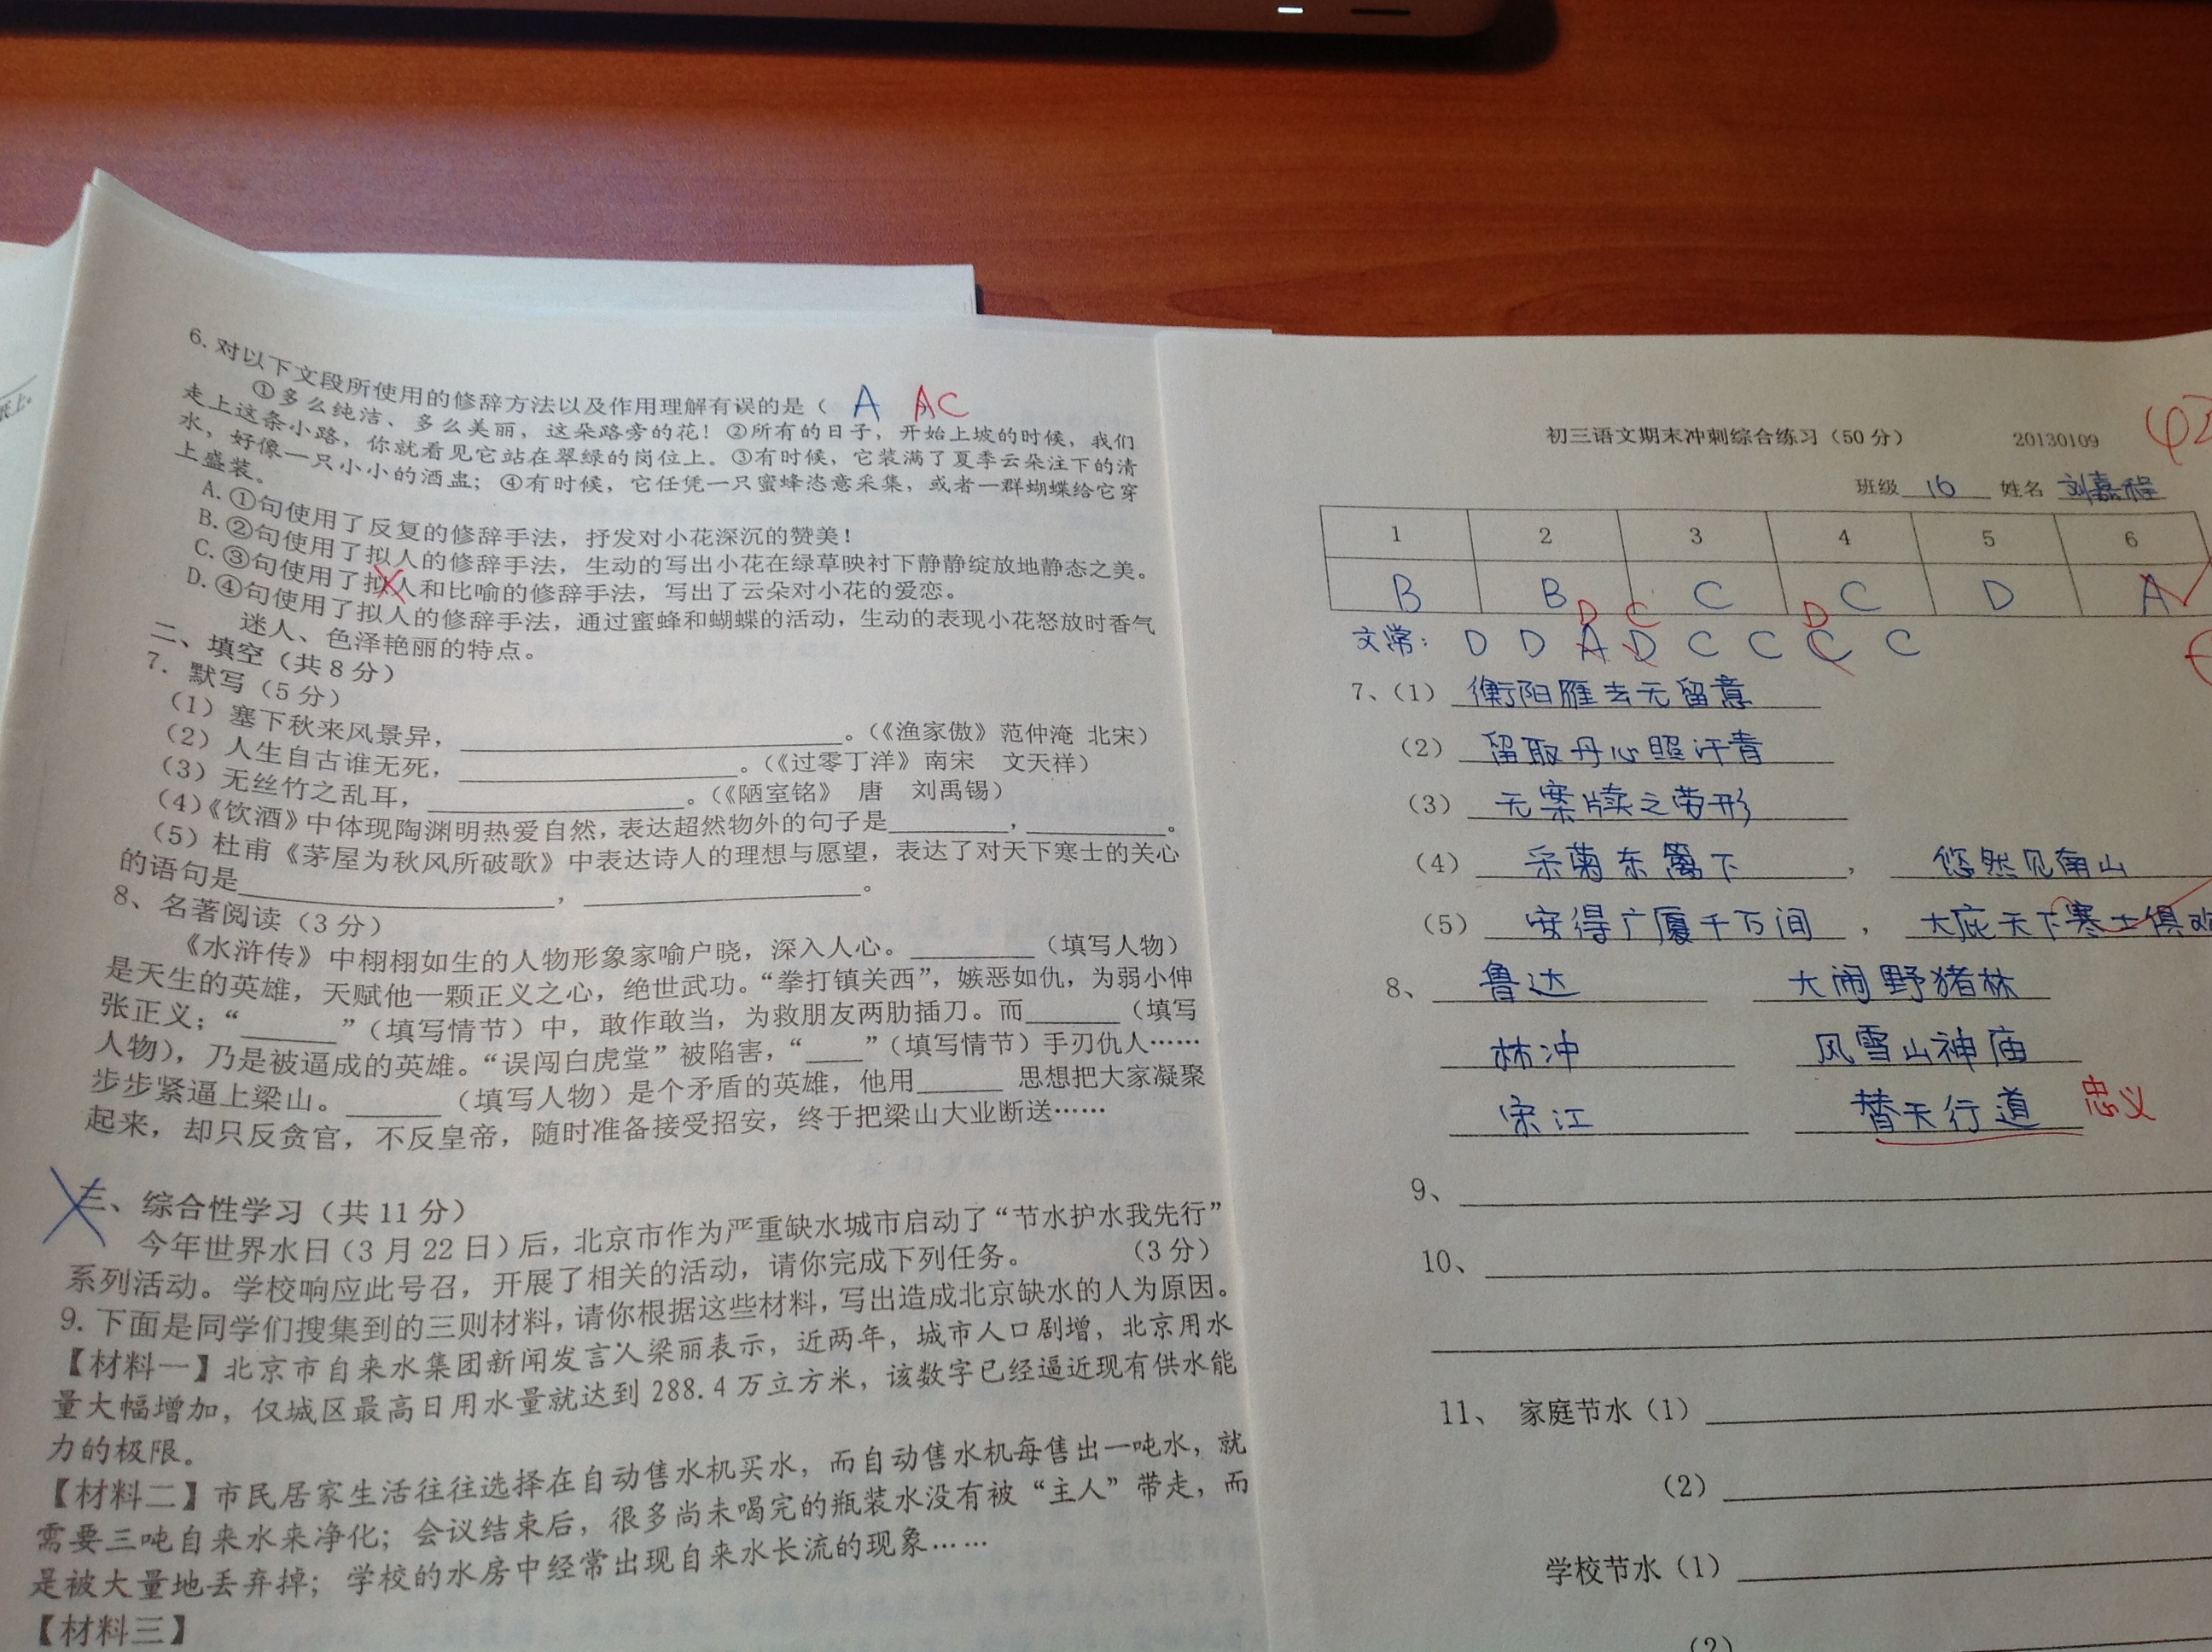 纸上。
6. 对以下文段所使用的修辞方法以及作用理解有误的是（ A AC
①多么纯洁、多么美丽，这朵路旁的花！②所有的日子，开始上坡的时候，我们
走上这条小路，你就看见它站在翠绿的岗位上。③有时候，它装满了夏季云朵注下的清
水，好像一只小小的酒盅；④有时候，它任凭一只蜜蜂恣意采集，或者一群蝴蝶给它穿
上盛装。
A. ①句使用了反复的修辞手法，抒发对小花深沉的赞美！
B. ②句使用了拟人的修辞手法，生动的写出小花在绿草映衬下静静绽放地静态之美。
C. ③句使用了拟人和比喻的修辞手法，写出了云朵对小花的爱恋。
D. ④句使用了拟人的修辞手法，通过蜜蜂和蝴蝶的活动，生动的表现小花怒放时香气
迷人、色泽艳丽的特点。
二、填空（共8分）
7. 默写（5分）
（1）塞下秋来风景异，____________。（《渔家傲》范仲淹 北宋）
（2）人生自古谁无死，____________。（《过零丁洋》南宋 文天祥）
（3）无丝竹之乱耳，____________。（《陋室铭》 唐 刘禹锡）
（4）《饮酒》中体现陶渊明热爱自然，表达超然物外的句子是________，________。
（5）杜甫《茅屋为秋风所破歌》中表达诗人的理想与愿望，表达了对天下寒士的关心
的语句是____________，____________。
8、名著阅读（3分）
《水浒传》中栩栩如生的人物形象家喻户晓，深入人心。________（填写人物）
是天生的英雄，天赋他一颗正义之心，绝世武功。“拳打镇关西”，嫉恶如仇，为弱小伸
张正义；“______”（填写情节）中，敢作敢当，为救朋友两肋插刀。而______（填写
人物），乃是被逼成的英雄。“误闯白虎堂”被陷害，“____”（填写情节）手刃仇人……
步步紧逼上梁山。______（填写人物）是个矛盾的英雄，他用______ 思想把大家凝聚
起来，却只反贪官，不反皇帝，随时准备接受招安，终于把梁山大业断送……
三、综合性学习（共11分）
今年世界水日（3月22日）后，北京市作为严重缺水城市启动了“节水护水我先行”
系列活动。学校响应此号召，开展了相关的活动，请你完成下列任务。 （3分）
9. 下面是同学们搜集到的三则材料，请你根据这些材料，写出造成北京缺水的人为原因。
【材料一】北京市自来水集团新闻发言人梁丽表示，近两年，城市人口剧增，北京用水
量大幅增加，仅城区最高日用水量就达到288.4万立方米，该数字已经逼近现有供水能
力的极限。
【材料二】市民居家生活往往选择在自动售水机买水，而自动售水机每售出一吨水，就
需要三吨自来水来净化；会议结束后，很多尚未喝完的瓶装水没有被“主人”带走，而
是被大量地丢弃掉；学校的水房中经常出现自来水长流的现象……
【材料三】
初三语文期末冲刺综合练习（50分） 20130109
班级 16 姓名 刘嘉程
1 2 3 4 5 6
B B C C D A
D C D
文常： D D A D C C C C
7、（1） 衡阳雁去无留意
（2） 留取丹心照汗青
（3） 无案牍之劳形
（4） 采菊东篱下 ， 悠然见南山
（5） 安得广厦千万间 ， 大庇天下寒士俱欢
8、 鲁达 大闹野猪林
林冲 风雪山神庙
宋江 替天行道 忠义
9、
10、
11、 家庭节水（1）
（2）
学校节水（1）
（2）